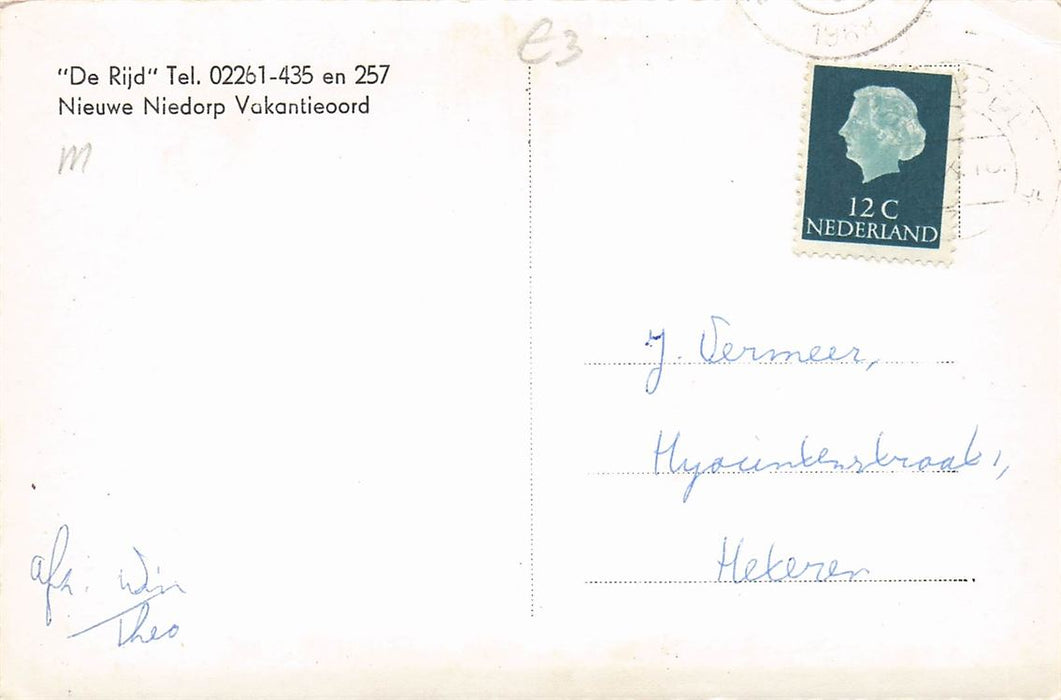 e3
"De Rijd" Tel. 02261-435 en 257
Nieuwe Niedorp Vakantieoord
m
12 C
NEDERLAND
J. Vermeer,
Hyacintenstraat 1,
Hekeren
afz. Win
Theo